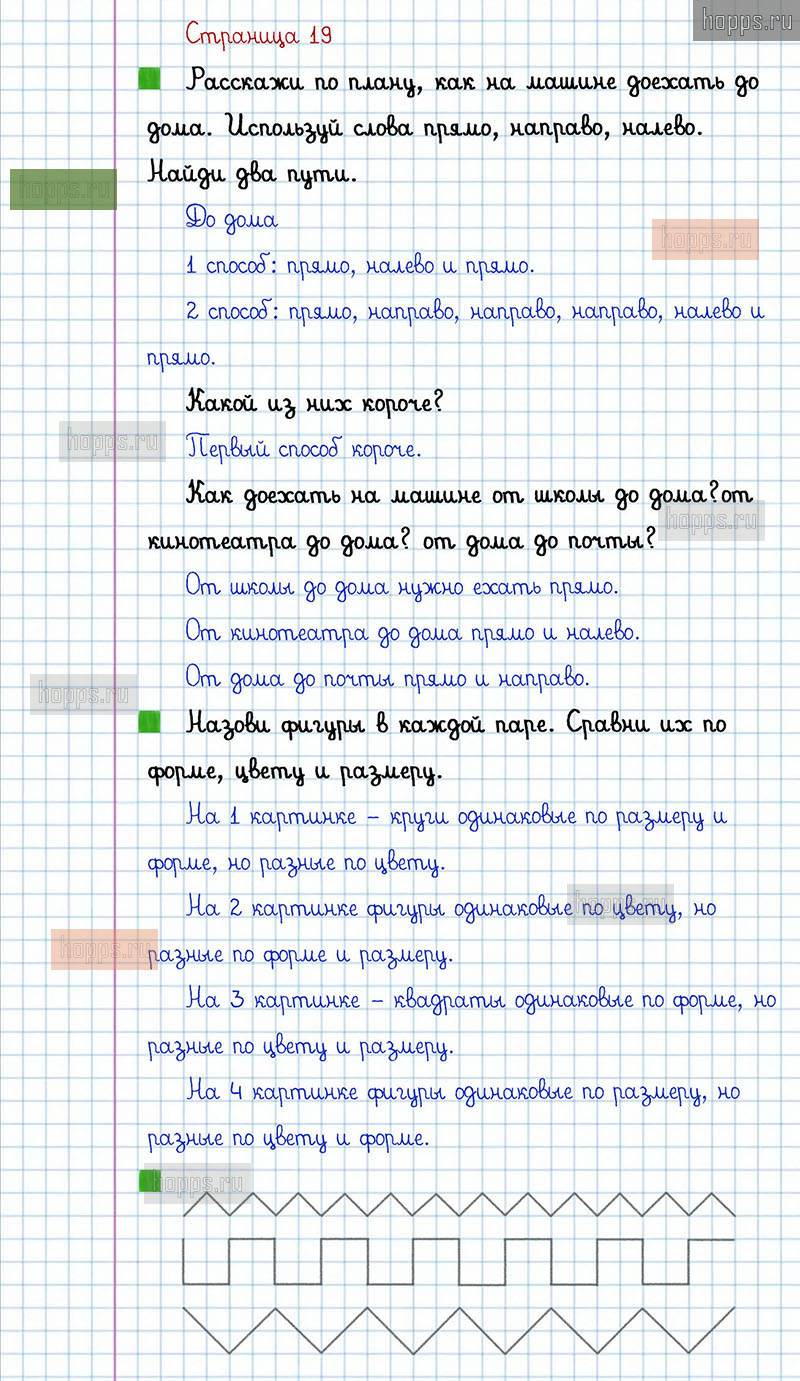 hopps.ru
Страница 19
Расскажи по плану, как на машине доехать до
дома. Используй слова прямо, направо, налево.
hopps.ru
Найди два пути.
До дома
hopps.ru
1 способ: прямо, налево и прямо.
2 способ: прямо, направо, направо, направо, налево и
прямо.
Какой из них короче?
hopps.ru
Первый способ короче.
Как доехать на машине от школы до дома?от
hopps.ru
кинотеатра до дома? от дома до почты?
От школы до дома нужно ехать прямо.
От кинотеатра до дома прямо и налево.
От дома до почты прямо и направо.
hopps.ru
Назови фигуры в каждой паре. Сравни их по
форме, цвету и размеру.
На 1 картинке – круги одинаковые по размеру и
форме, но разные по цвету.
hopps.ru
На 2 картинке фигуры одинаковые по цвету, но
hopps.ru
разные по форме и размеру.
На 3 картинке – квадраты одинаковые по форме, но
разные по цвету и размеру.
На 4 картинке фигуры одинаковые по размеру, но
разные по цвету и форме.
hopps.ru